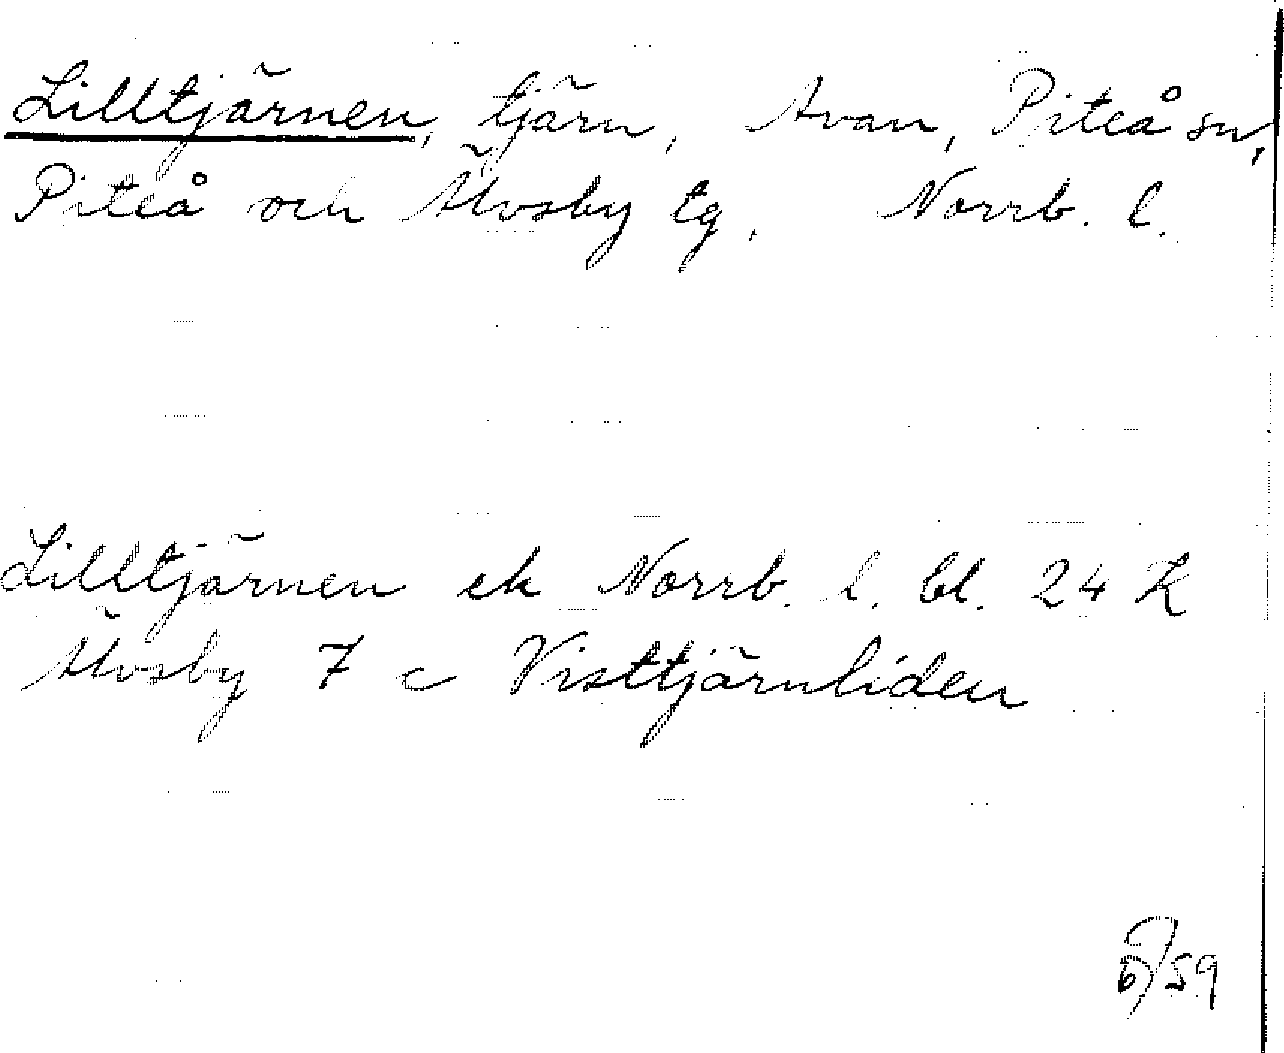 Lilltjärnen, tjärn, Avan, Piteå sn,
Piteå och Älvsby tg, Norrb. l.
Lilltjärnen ek Norrb. l. bl. 24 K
Älvsby 7 c Visttjärnliden
6/59